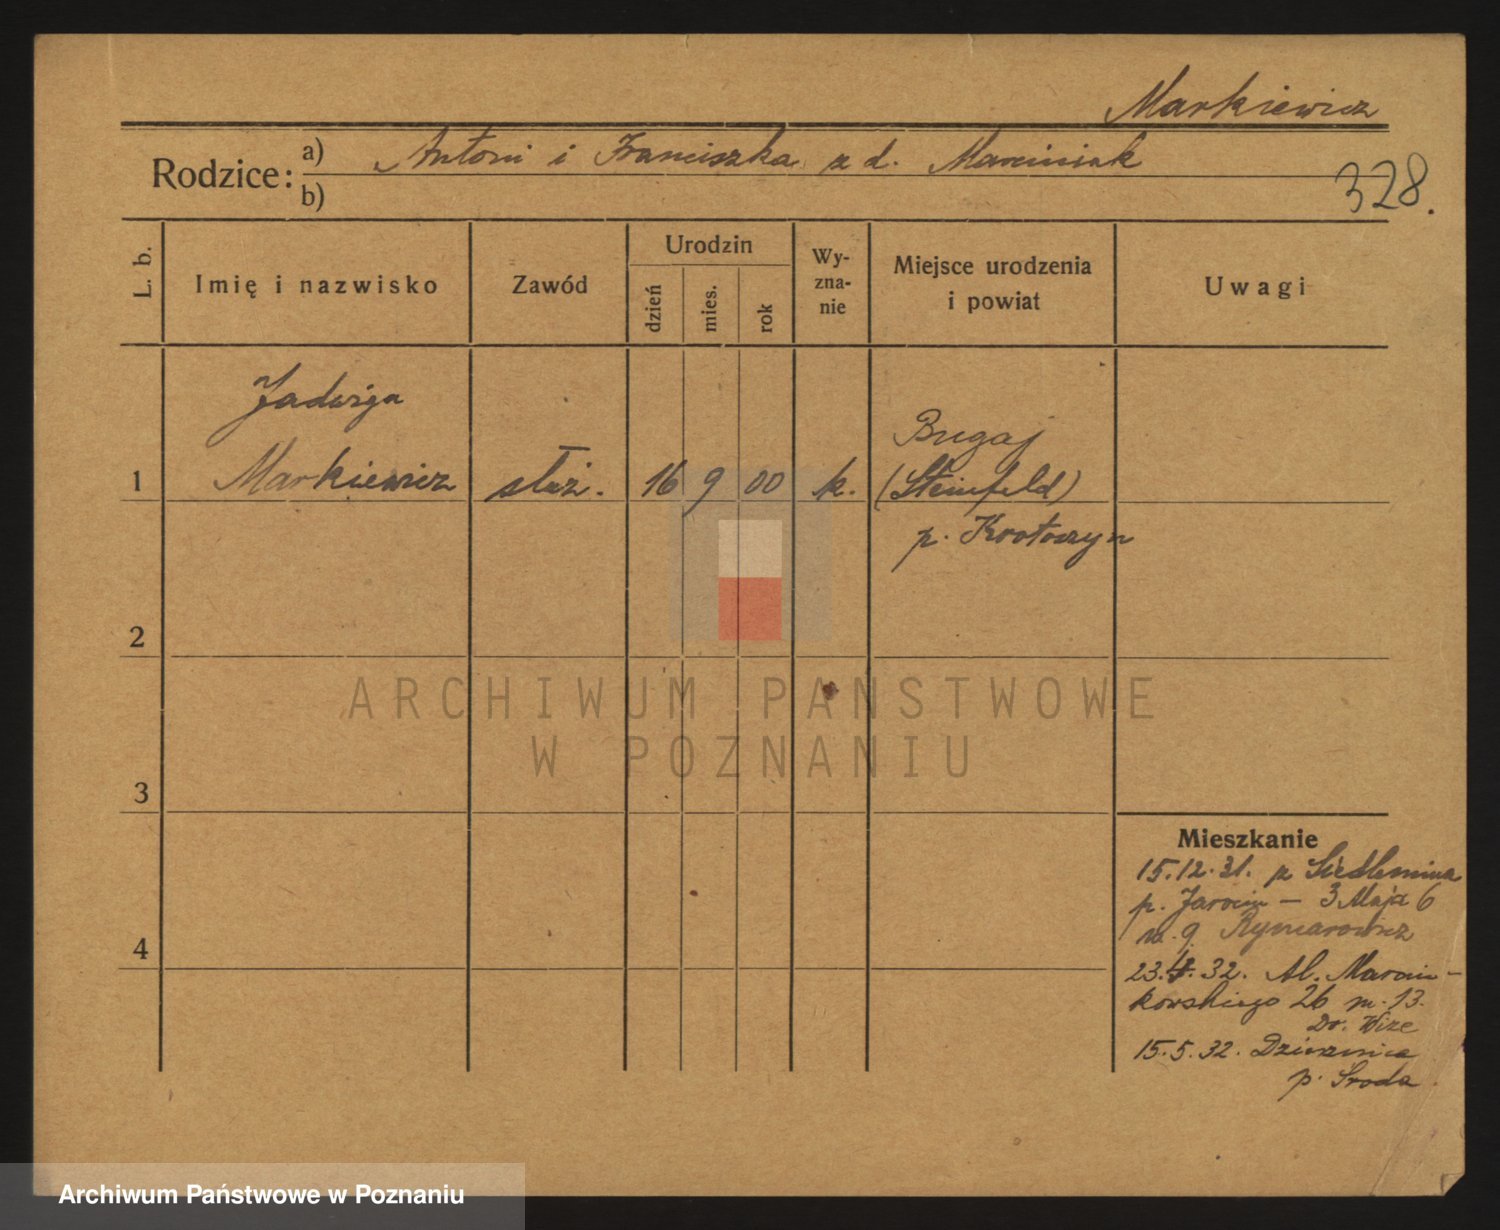 Markiewicz
Rodzice: a) Antoni i Franciszka z d. Marciniak
b)
328.
L. b.
Imię i nazwisko
Zawód
Urodzin
dzień
mies.
rok
Wy-
zna-
nie
Miejsce urodzenia
i powiat
Uwagi
Jadwiga
Bugaj
1 Markiewicz służ. 16 9 00 k. (Steinfeld)
p. Krotoszyn
2
ARCHIWUM PAŃSTWOWE
W POZNANIU
3
Mieszkanie
15.12.31. z Siedlemina
p. Jarocin — 3 Maja 6
m. 9 Rymarowicz
4
23.4.32. Al. Marcin-
kowskiego 26 m. 13.
Dr. Wize
15.5.32.
p. Środa.
Archiwum Państwowe w Poznaniu